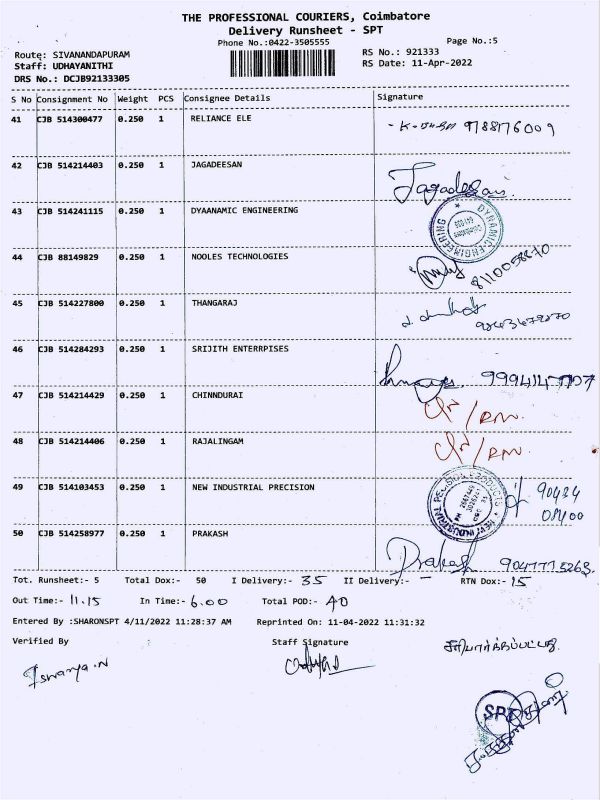 THE PROFESSIONAL COURIERS, Coimbatore
Delivery Runsheet - SPT
Phone No.:0422-3505555
Page No.:5
Route: SIVANANDAPURAM
RS No.: 921333
Staff: UDHAYANITHI
RS Date: 11-Apr-2022
DRS No.: DCJB92133305
S No Consignment No Weight PCS Consignee Details Signature
41 CJB 514300477 0.250 1 RELIANCE ELE
42 CJB 514214403 0.250 1 JAGADEESAN Jagadesan
43 CJB 514241115 0.250 1 DYAANAMIC ENGINEERING
DYNAMIC ENGINEERING
44 CJB 88149829 0.250 1 NOOLES TECHNOLOGIES
45 CJB 514227800 0.250 1 THANGARAJ
46 CJB 514284293 0.250 1 SRIJITH ENTERRPISES
47 CJB 514214429 0.250 1 CHINNDURAI
48 CJB 514214406 0.250 1 RAJALINGAM
49 CJB 514103453 0.250 1 NEW INDUSTRIAL PRECISION
NEW INDUSTRIAL PRECISION PRODUCTS
50 CJB 514258977 0.250 1 PRAKASH Prakash
Tot. Runsheet:- 5 Total Dox:- 50 I Delivery:- 35 II Delivery:- - RTN Dox:- 15
Out Time:- 11.15 In Time:- 6.00 Total POD:- 40
Entered By :SHARONSPT 4/11/2022 11:28:37 AM Reprinted On: 11-04-2022 11:31:32
Verified By Staff Signature
SPT